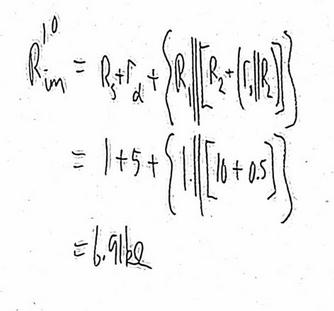 R_in^10 = R_s+r_d+{R_1||[R_2+(r_s||R_2]]}
= 1+5+{1.||[10+0.5]}
=6.91kΩ